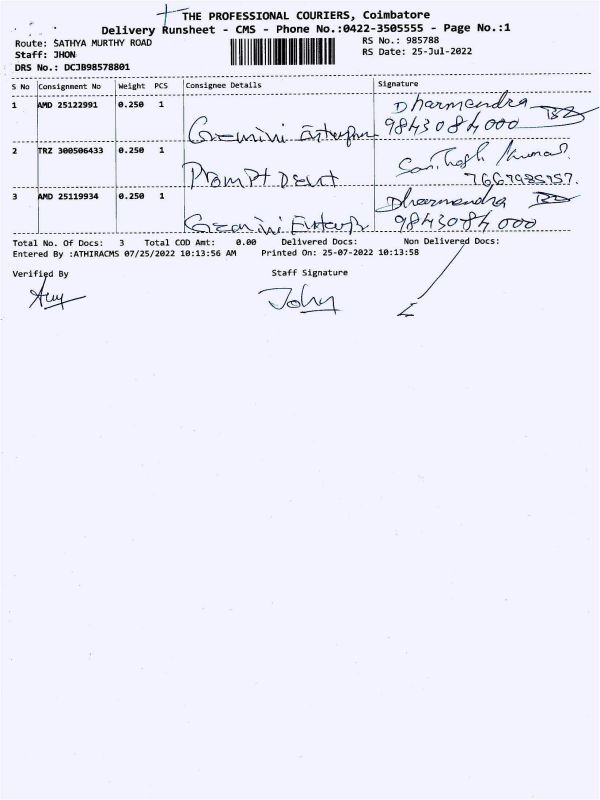 THE PROFESSIONAL COURIERS, Coimbatore
Delivery Runsheet - CMS - Phone No.:0422-3505555 - Page No.:1
Route: SATHYA MURTHY ROAD RS No.: 985788
Staff: JHON RS Date: 25-Jul-2022
DRS No.: DCJB98578801
S No Consignment No Weight PCS Consignee Details Signature
1 AMD 25122991 0.250 1 Dharmendra
Gemini 9843084000
2 TRZ 300506433 0.250 1 Santhosh Kumar.
Prompt
3 AMD 25119934 0.250 1 Dharmendra
Gemini 9843084000
Total No. Of Docs: 3 Total COD Amt: 0.00 Delivered Docs: Non Delivered Docs:
Entered By :ATHIRACMS 07/25/2022 10:13:56 AM Printed On: 25-07-2022 10:13:58
Verified By Staff Signature
John